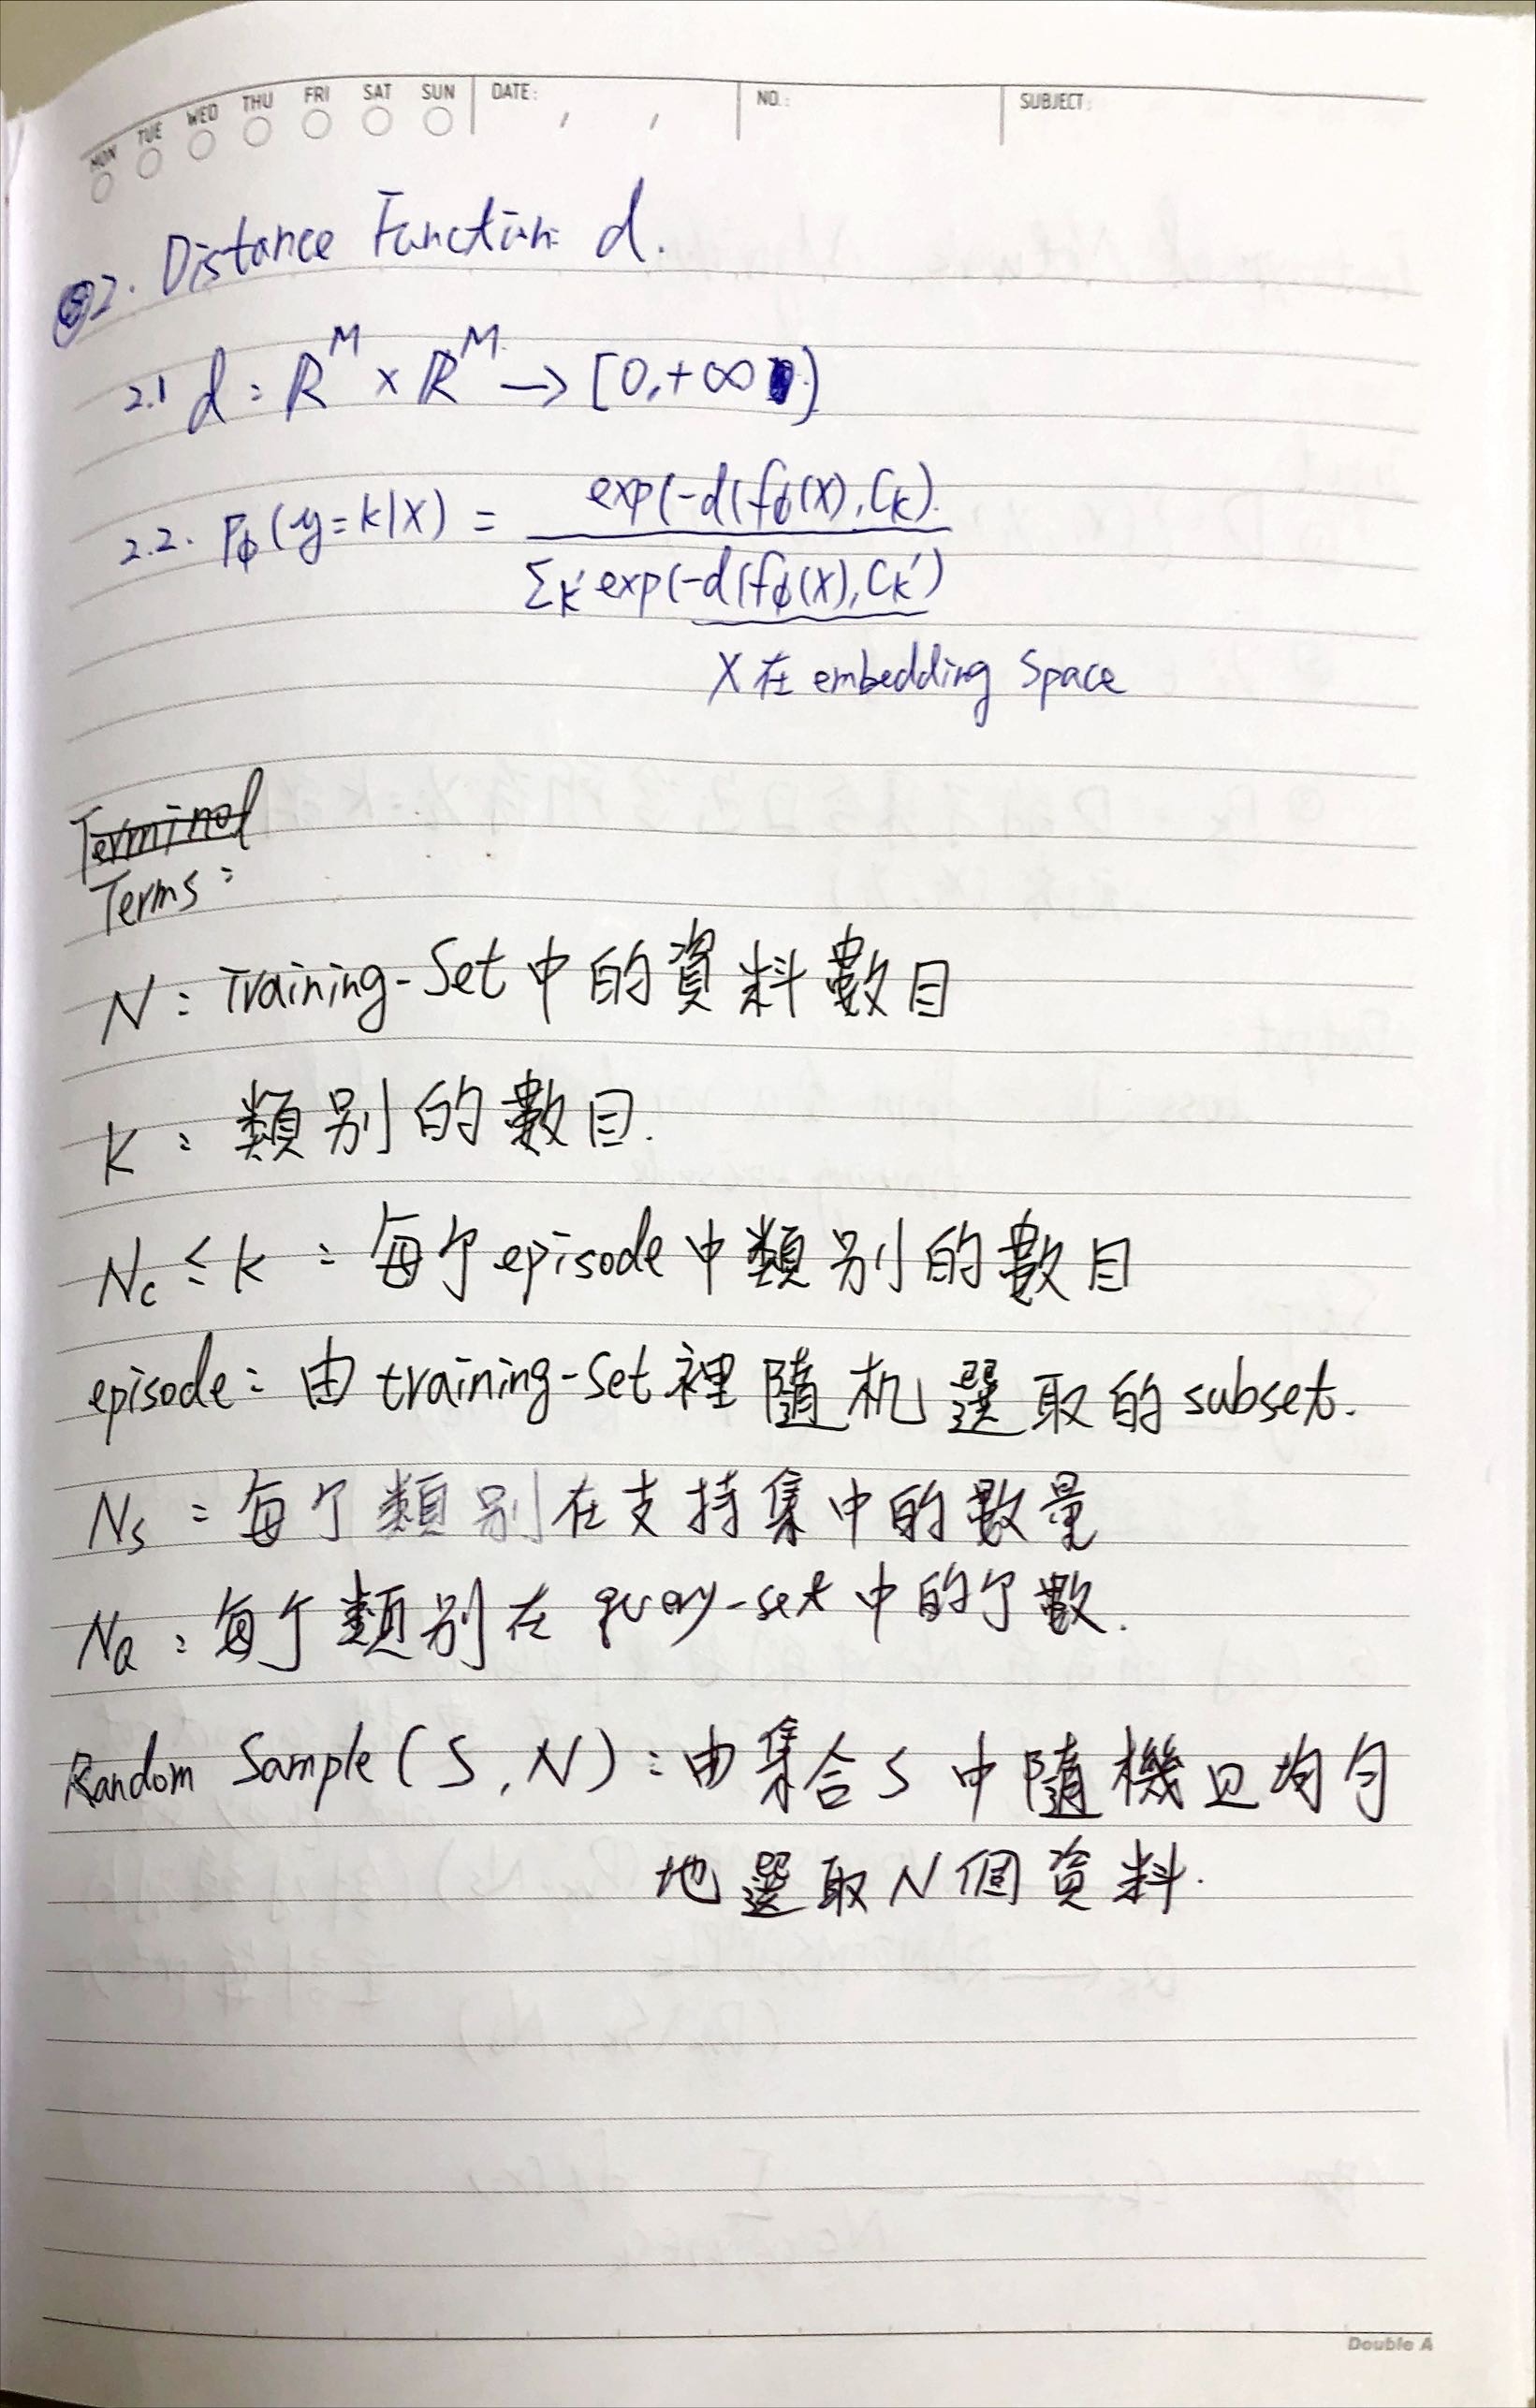 MON TUE WED THU FRI SAT SUN DATE: / / NO.: SUBJECT:
2. Distance Function d.
2.1 d : ℝ^M × ℝ^M → [0,+∞)
2.2. P_ϕ(y=k|x) = exp(-d(f_ϕ(x),C_k) / Σ_k' exp(-d(f_ϕ(x),C_k')
X在 embedding Space
Terminal
Terms:
N: Training-Set中的資料數目
K: 類別的數目.
N_c ≤ K : 每个episode中類別的數目
episode: 由training-Set裡隨机選取的subset.
N_s : 每个類別在支持集中的數量
N_Q : 每个類別在query-set中的个數.
Random Sample(S,N): 由集合S中隨機且均勻
地選取N個資料.
Double A